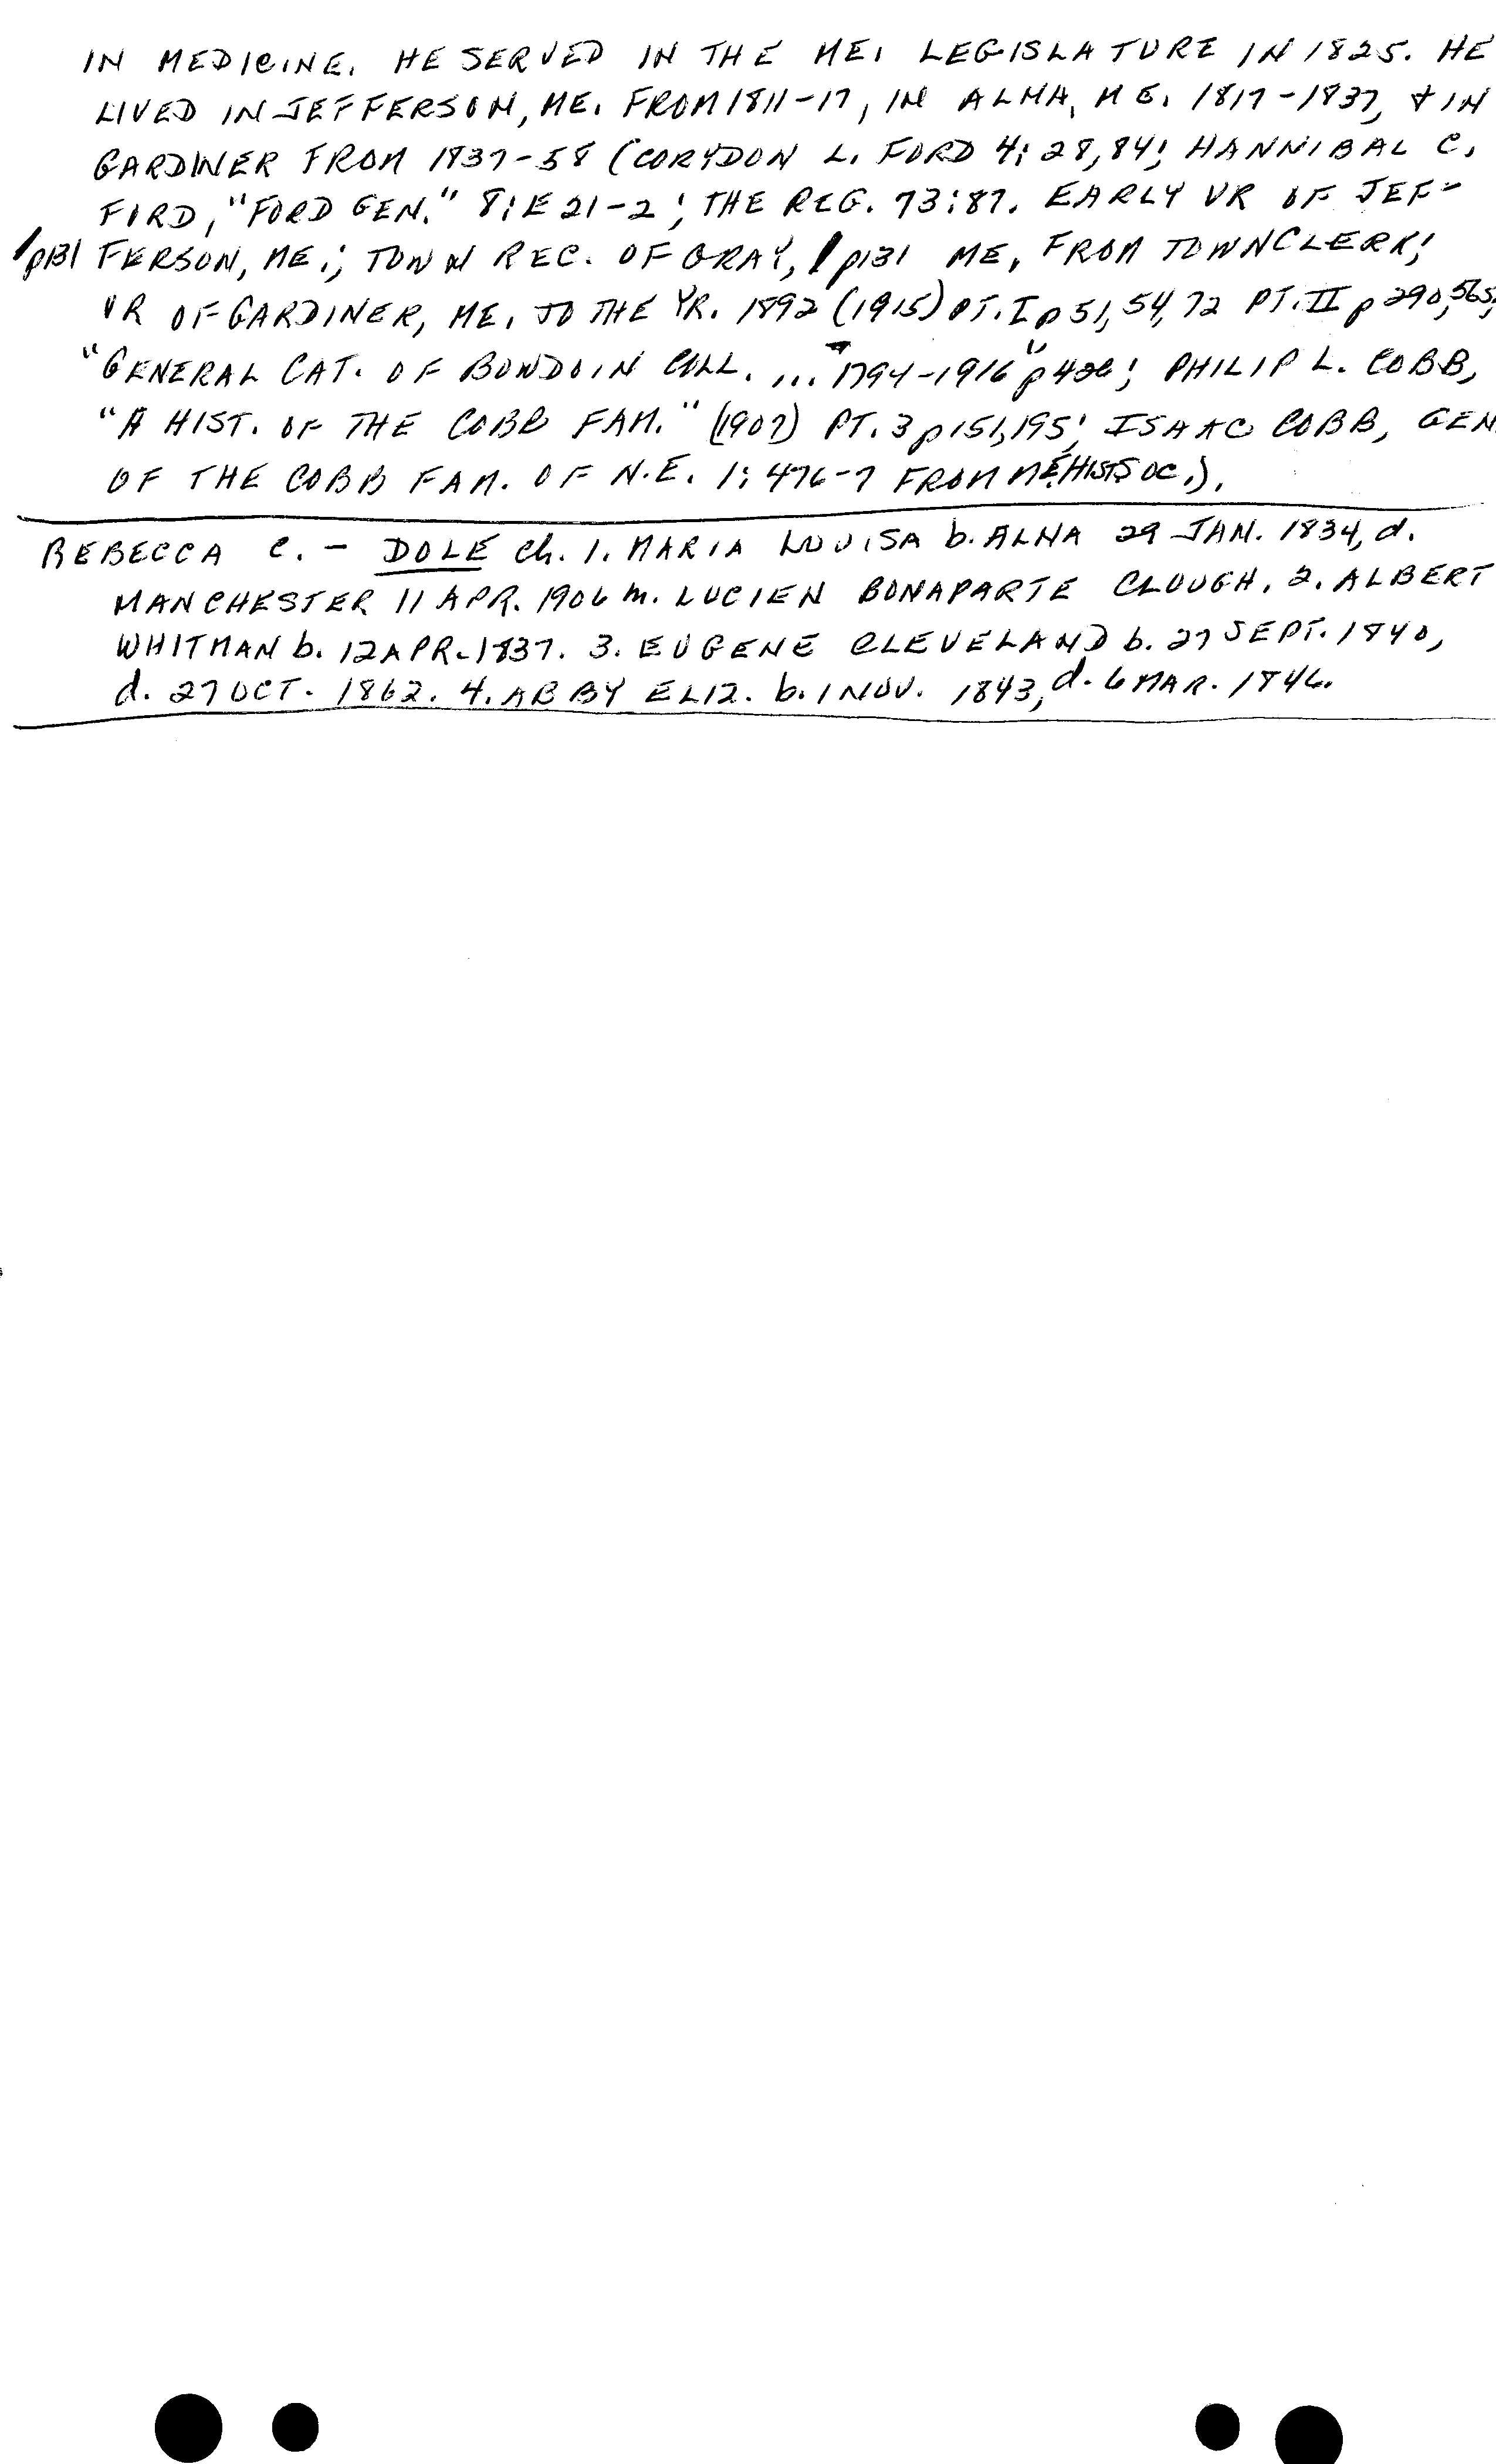 IN MEDICINE. HE SERVED IN THE ME. LEGISLATURE IN 1825. HE
LIVED IN JEFFERSON, ME. FROM 1811-17, IN ALNA, ME. 1817-1837, & IN
GARDINER FROM 1837-58 (CORYDON L. FORD 4:28,84; HANNIBAL C.
FORD, "FORD GEN." 8:E 21-2; THE REG. 73:87. EARLY VR OF JEF-
/p131 FERSON, ME.; TOWN REC. OF GRAY, / p131 ME, FROM TOWN CLERK;
VR OF GARDINER, ME. TO THE YR. 1892 (1915) PT. I p 51, 54, 72 PT. II p 290, 565;
"GENERAL CAT. OF BOWDOIN COLL. ... 1794-1916" p 426; PHILIP L. COBB,
"A HIST. OF THE COBB FAM." (1907) PT. 3 p 151, 195; ISAAC COBB, GEN.
OF THE COBB FAM. OF N.E. 1: 476-7 FROM ME. HIST SOC.).
REBECCA C. - DOLE ch. 1. MARIA LOUISA b. ALNA 29 JAN. 1834, d.
MANCHESTER 11 APR. 1906 m. LUCIEN BONAPARTE CLOUGH. 2. ALBERT
WHITMAN b. 12 APR. 1837. 3. EUGENE CLEVELAND b. 27 SEPT. 1840,
d. 27 OCT. 1862. 4. ABBY ELIZ. b. 1 NOV. 1843, d. 6 MAR. 1846.